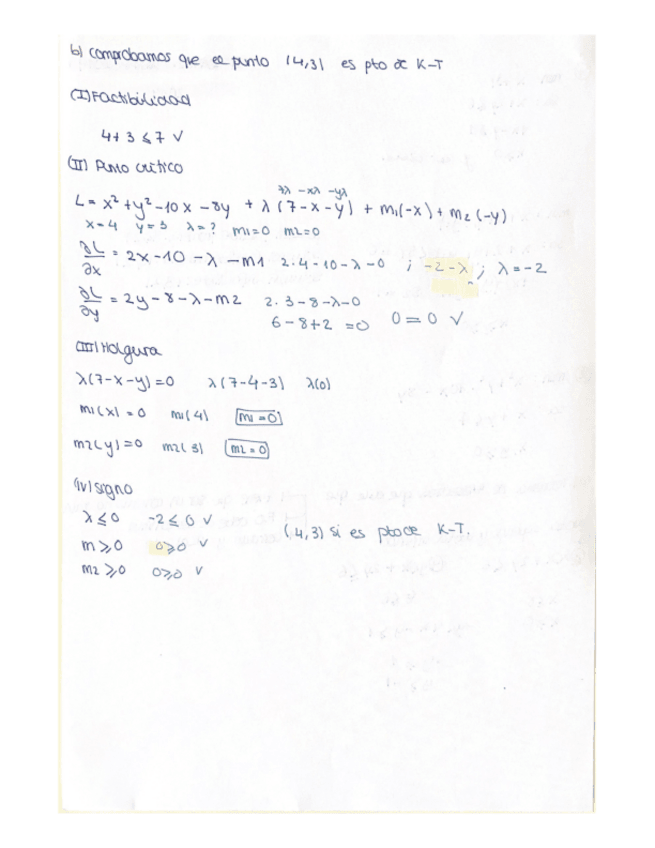 b) comprobamos que el punto (4,3) es pto de K-T
(I) Factibilidad
4+3 ≤ 7 √
(II) Punto crítico
7λ -xλ -yλ
L = x² + y² - 10x - 8y + λ (7-x-y) + m1(-x) + m2 (-y)
x=4 y=3 λ=? m1=0 m2=0
∂L/∂x = 2x-10-λ-m1 2·4-10-λ-0 ; -2-λ ; λ=-2
∂L/∂y = 2y-8-λ-m2 2·3-8-λ-0
6-8+2=0 0=0 √
(III) Holgura
λ(7-x-y)=0 λ(7-4-3) λ(0)
m1(x)=0 m1(4) m1=0
m2(y)=0 m2(3) m2=0
(IV) signo
λ≤0 -2≤0 √
(4,3) si es pto de K-T.
m≥0 0≥0 √
m2≥0 0≥0 √